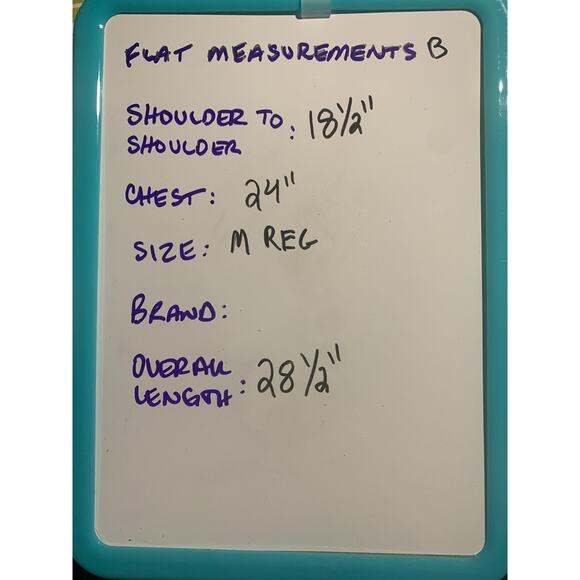 FLAT MEASUREMENTS B
SHOULDER TO
SHOULDER : 18 1/2"
CHEST: 24"
SIZE: M REG
BRAND:
OVERALL
LENGTH: 28 1/2"